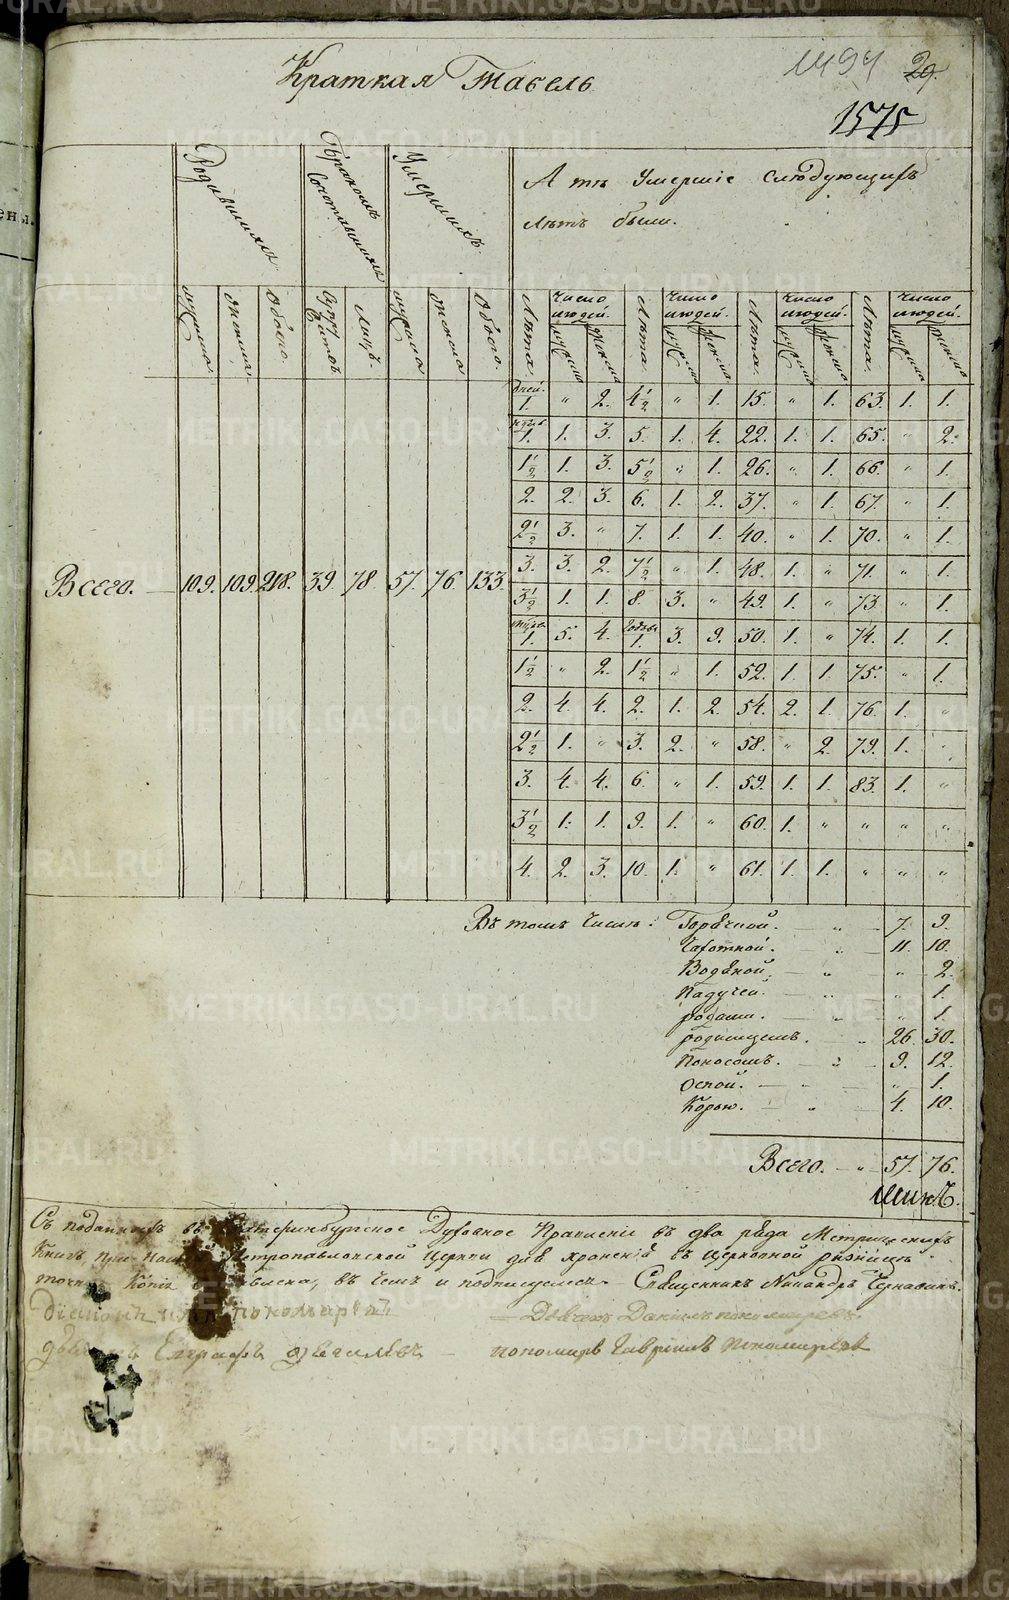 Краткая Табель
1494 29.
1575
Родившихся
Бракомъ Сочетавшихся
Умершихъ.
А тѣ Умершіе Слѣдующихъ
Лѣтъ были.
мужеска женска Обоего. Лицъ. мужеска женска Обоего. Лѣта. Число людей. Лѣта. Число людей. Лѣта. Число людей. Лѣта. Число людей.
мужеска женска мужеска женска мужеска женска мужеска женска
дней. 1. " 2. 4½ " 1. 15. " 1. 63. 1. 1.
1. 1. 3. 5. 1. 4. 22. 1. 1. 65. " 2.
1½ 1. 3. 5½ " 1. 26. " 1. 66. " 1.
2. 2. 3. 6. 1. 2. 37. " 1. 67. " 1.
2½ 3. " 7. 1. 1. 40. " 1. 70. " 1.
3. 3. 2. 7½ " 1. 48. 1. " 71. " 1.
Всего. 109. 109. 218. 39. 78. 57. 76. 133.
3½ 1. 1. 8. 3. " 49. 1. " 73. " 1.
1. 5. 4. годы 1. 3. 9. 50. 1. " 74. 1. 1.
1½ " 2. 1½ " 1. 52. 1. 1. 75. " 1.
2. 4. 4. 2. 1. 2. 54. 2. 1. 76. 1. "
2½ 1. " 3. 2. " 58. " 2. 79. 1. "
3. 4. 4. 6. " 1. 59. 1. 1. 83. 1. "
3½ 1. 1. 9. 1. " 60. 1. " " " "
4. 2. 3. 10. 1. " 61. 1. 1. " " "
Въ томъ Числѣ: Горячкой. — " — 7. 9.
Чахоткой. — " — 11. 10.
Водяной. — " — " 2.
Падучей. — " — " 1.
родами. — " — " 1.
родимцемъ. — " 26. 30.
Поносомъ. — " — 9. 12.
Оспой. — " — " 1.
Корью. — " — 4. 10.
Всего. — " — 57. 76.
Съ поданныхъ въ Екатеринбургское Духовное Правленіе въ два ряда Метрическихъ
Книгъ при Петропавловской Церкви для храненія въ Церковной ризницѣ
точная Копія въ чемъ и подписуемся. Священникъ Никандръ Чернавинъ.
Діаконъ
Дьячекъ Данилъ Пономаревъ
Евграфъ
пономарь Гавріилъ Пономаревъ
METRIKI.GASO-URAL.RU